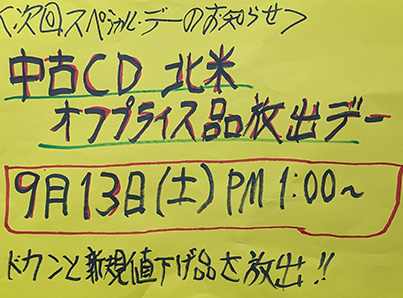 <次回スペシャル・デーのお知らせ>
中古CD 北米
オフプライス品放出デー
9月13日(土) PM 1:00~
ドカンと新規値下げ品を放出!!